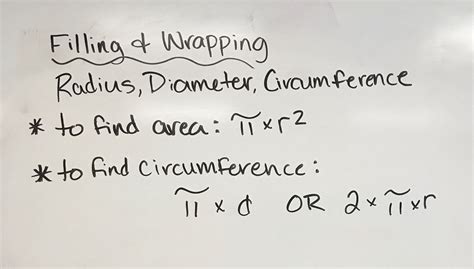 Filling & Wrapping
Radius, Diameter, Circumference
* to find area: π × r²
* to find circumference:
π × d OR 2 × π × r